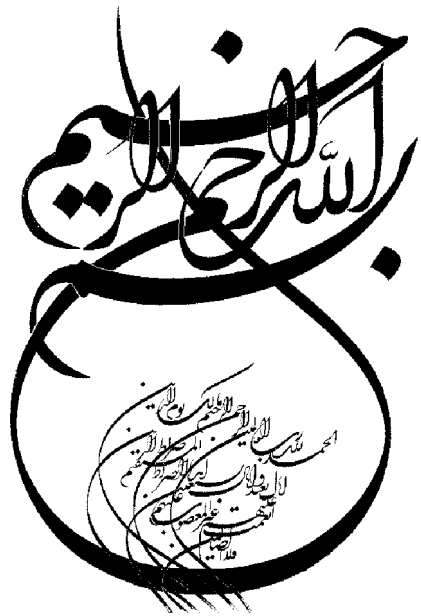 بسم الله الرحمن الرحیم
الحمد لله رب العالمین الرحمن الرحیم مالک یوم الدین
ایاک نعبد و ایاک نستعین اهدنا الصراط المستقیم
صراط الذین انعمت علیهم غیر المغضوب علیهم
و لا الضالین